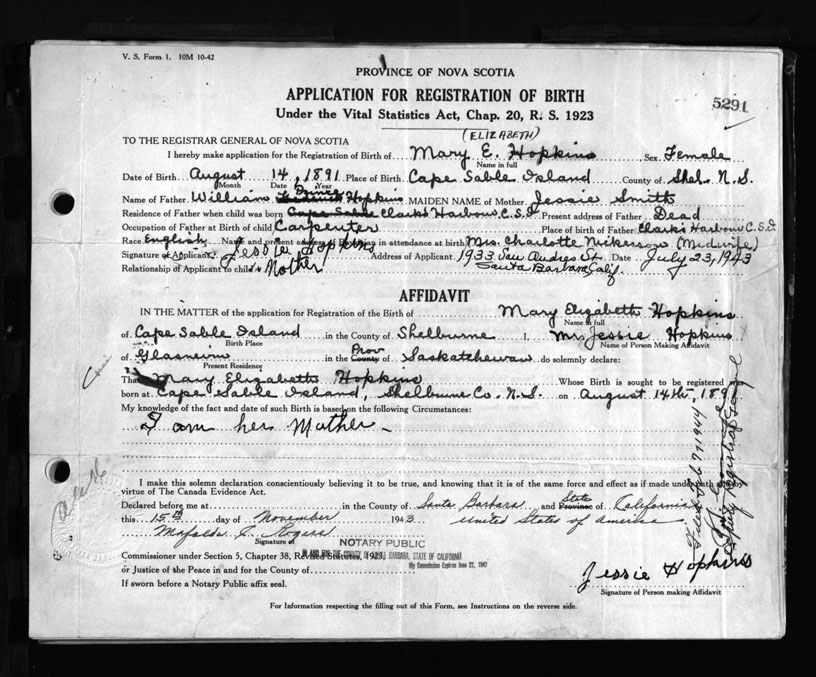 V. S. Form 1. 10M 10-42
PROVINCE OF NOVA SCOTIA
APPLICATION FOR REGISTRATION OF BIRTH
5291
Under the Vital Statistics Act, Chap. 20, R. S. 1923
(ELIZABETH)
TO THE REGISTRAR GENERAL OF NOVA SCOTIA
I hereby make application for the Registration of Birth of Mary E. Hopkins Sex Female
Name in full
Date of Birth August 14, 1891 Place of Birth Cape Sable Island County of Shel. N. S.
Month Date Year
Name of Father William Prince Hopkins MAIDEN NAME of Mother Jessie Smith
Residence of Father when child was born Cape Sable Clarks Harbour C.S.I. Present address of Father Dead
Occupation of Father at Birth of child Carpenter Place of birth of Father Clarks Harbour C.S.I.
Race English Name and present address of in attendance at birth Mrs. Charlotte Nickerson (Midwife)
Signature of Applicant Jessie Hopkins Address of Applicant 1933 San Andres St. Date July 23, 1943
Relationship of Applicant to child Mother Santa Barbara, Calif.
AFFIDAVIT
IN THE MATTER of the application for Registration of the Birth of Mary Elizabeth Hopkins
Name in full
of Cape Sable Island in the County of Shelburne I, Mrs. Jessie Hopkins
Birth Place Name of Person Making Affidavit
of Glasnevin in the County Prov of Saskatchewan do solemnly declare:
Present Residence
That Mary Elizabeth Hopkins Whose Birth is sought to be registered was
born at Cape Sable Island, Shelburne Co. N.S. on August 14th, 1891
My knowledge of the fact and date of such Birth is based on the following Circumstances:
I am her Mother
I make this solemn declaration conscientiously believing it to be true, and knowing that it is of the same force and effect as if made under oath by
virtue of The Canada Evidence Act.
Declared before me at in the County of Santa Barbara and Province State of California
this 15th day of November 1943 United States of America
Mafalda Rogers
Signature of NOTARY PUBLIC
Commissioner under Section 5, Chapter 38, Revised Statutes, 1923,
IN AND FOR THE COUNTY OF SANTA BARBARA, STATE OF CALIFORNIA
My Commission Expires June 22, 1947
or Justice of the Peace in and for the County of
Jessie Hopkins
If sworn before a Notary Public affix seal.
Signature of Person making Affidavit
For Information respecting the filling out of this Form, see Instructions on the reverse side.
Deputy Registrar General